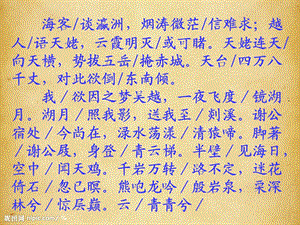 海客/谈瀛洲，烟涛微茫/信难求；越
人/语天姥，云霞明灭/或可睹。天姥连天/
向天横，势拔五岳/掩赤城。天台/四万八
千丈，对此欲倒/东南倾。
我/欲因之梦吴越，一夜飞度/镜湖
月。湖月/照我影，送我至/剡溪。谢公
宿处/今尚在，渌水荡漾/清猿啼。脚著
/谢公屐，身登/青云梯。半壁/见海日，
空中/闻天鸡。千岩万转/路不定，迷花
倚石/忽已暝。熊咆龙吟/殷岩泉，栗深
林兮/惊层巅。云/青青兮/